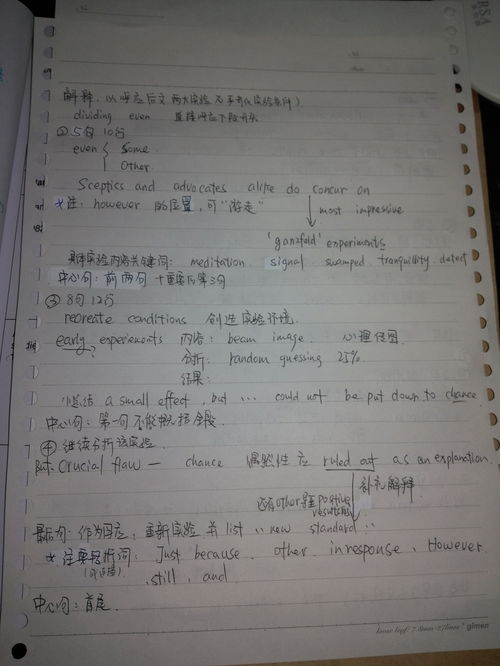 解释，以呼应后文 两大实验
dividing even 直接呼应下段开头
② 5句 10行
even { Some
Other
Sceptics and advocates alike do concur on
*注: however 的位置，可“游走”
most impressive
'ganzfeld' experiments
具体实验内容关键词: meditation signal swamped tranquillity detect
中心句: 前两句 + 重要内第3句
③ 8句 12行
recreate conditions 创造实验环境.
early experiments 内容: beam image. 心理
分析: random guessing 25%
结果:
小总结 a small effect, but ... could not be put down to chance
中心句: 第一句不能概括全段
④ 继续分析该实验.
But Crucial flaw — chance 偶然性应 ruled out as an explanation.
补充解释
还有other导致positive results
最后句: 作为回应，重新实验 并 list "new standard"
*注意转折词: Just because. Other. in response. However
still, and
中心句: 首尾.
gimen
RSA